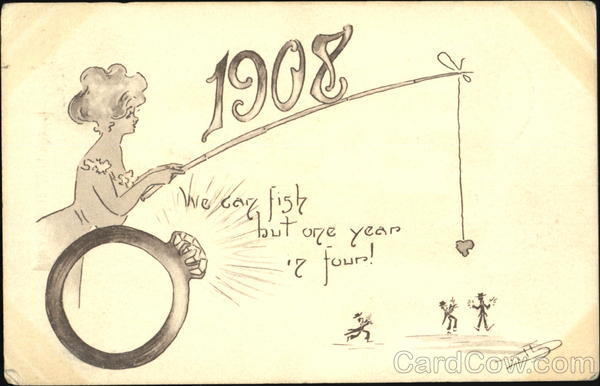 1908
We can fish
but one year
in four!
CardCow.com